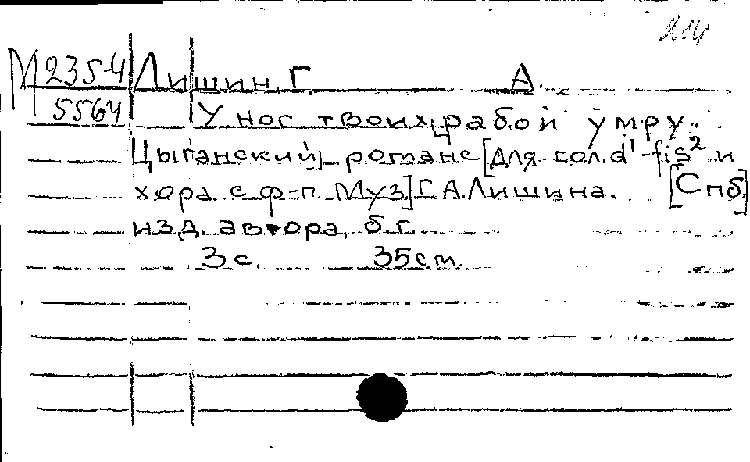 М 235-4 Лишин, Г. А.
5564 У ног твоих рабой умру..
Цыганский романс [для гол. d¹-fis² и
хора с ф-п. Муз.] Г.А.Лишина. [Спб.]
изд. автора, б.г.
3 с. 35 см.